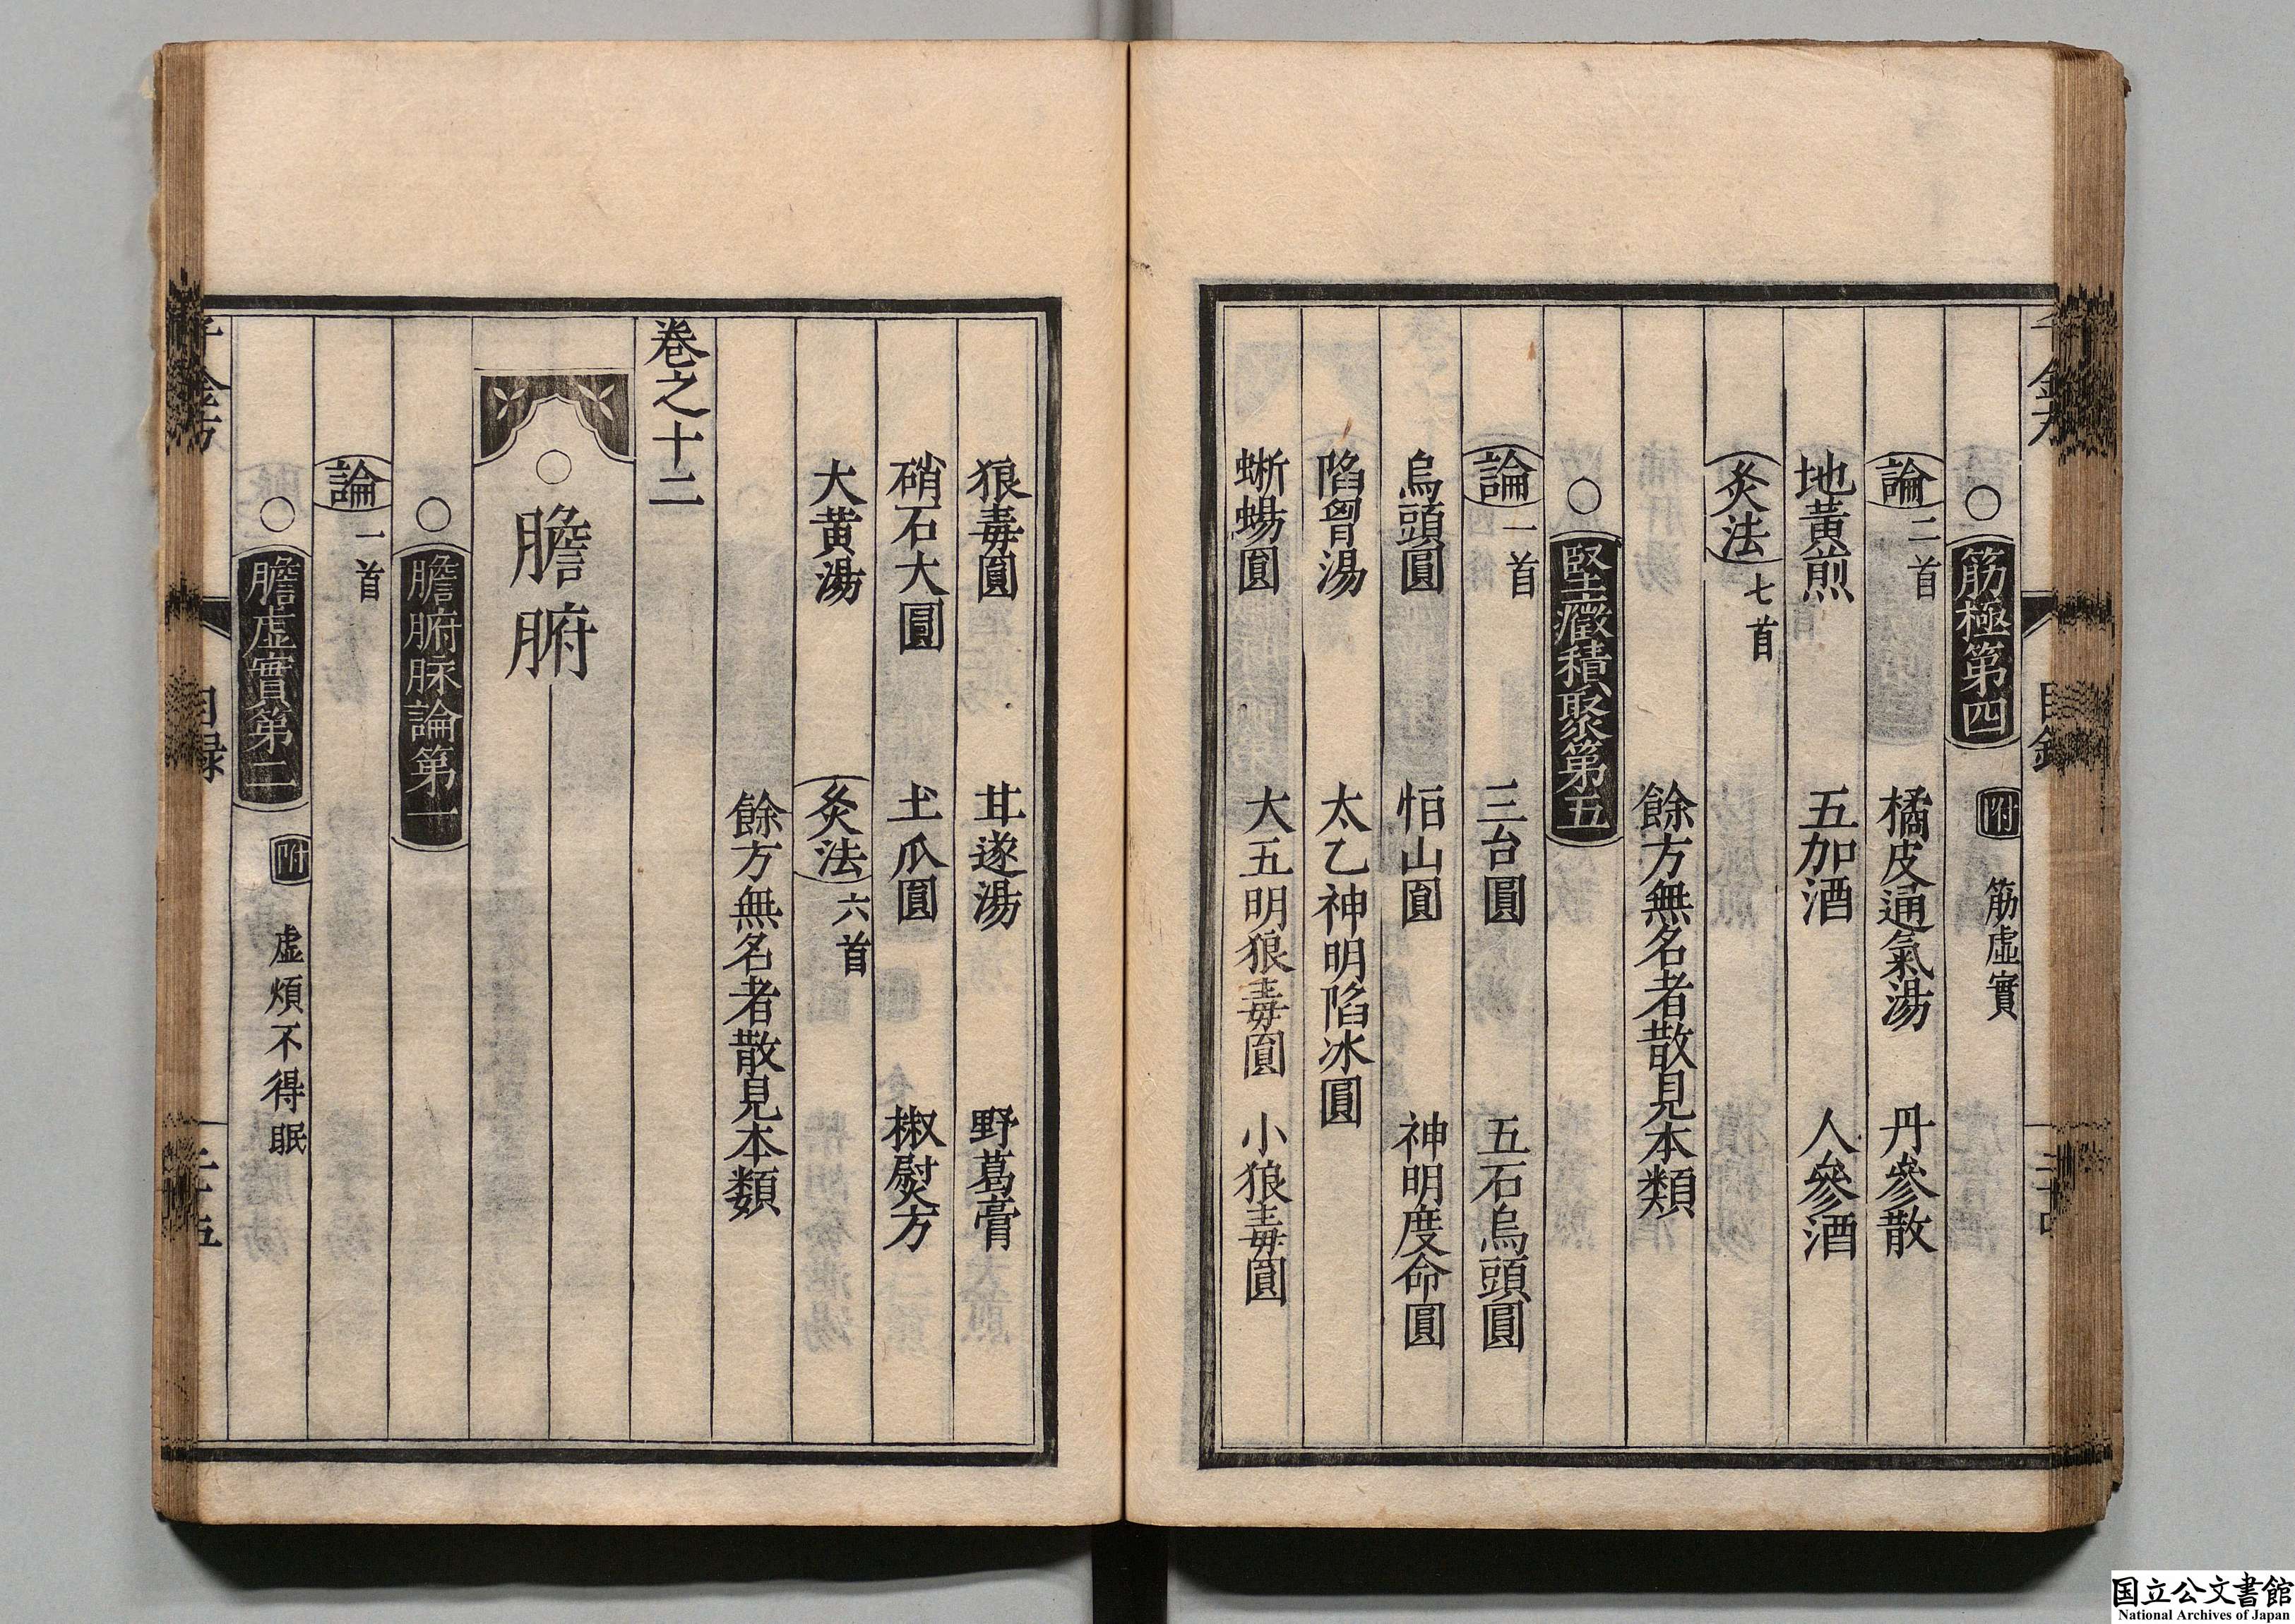 ○筋極第四 附 筋虛實
論二首 橘皮通氣湯 丹參散
地黃煎 五加酒 人參酒
灸法七首
餘方無名者散見本類
○堅癥積聚第五
論一首 三台圓 五石烏頭圓
烏頭圓 恒山圓 神明度命圓
陷胷湯 太乙神明陷冰圓
蜥蜴圓 大五明狼毒圓 小狼毒圓
狼毒圓 甘遂湯 野葛膏
硝石大圓 土瓜圓 椒熨方
大黃湯 灸法六首
餘方無名者散見本類
卷之十二
○膽腑
○膽腑脉論第一
論一首
○膽虛實第二 附 虛煩不得眠
千金方 目録
国立公文書館
National Archives of Japan